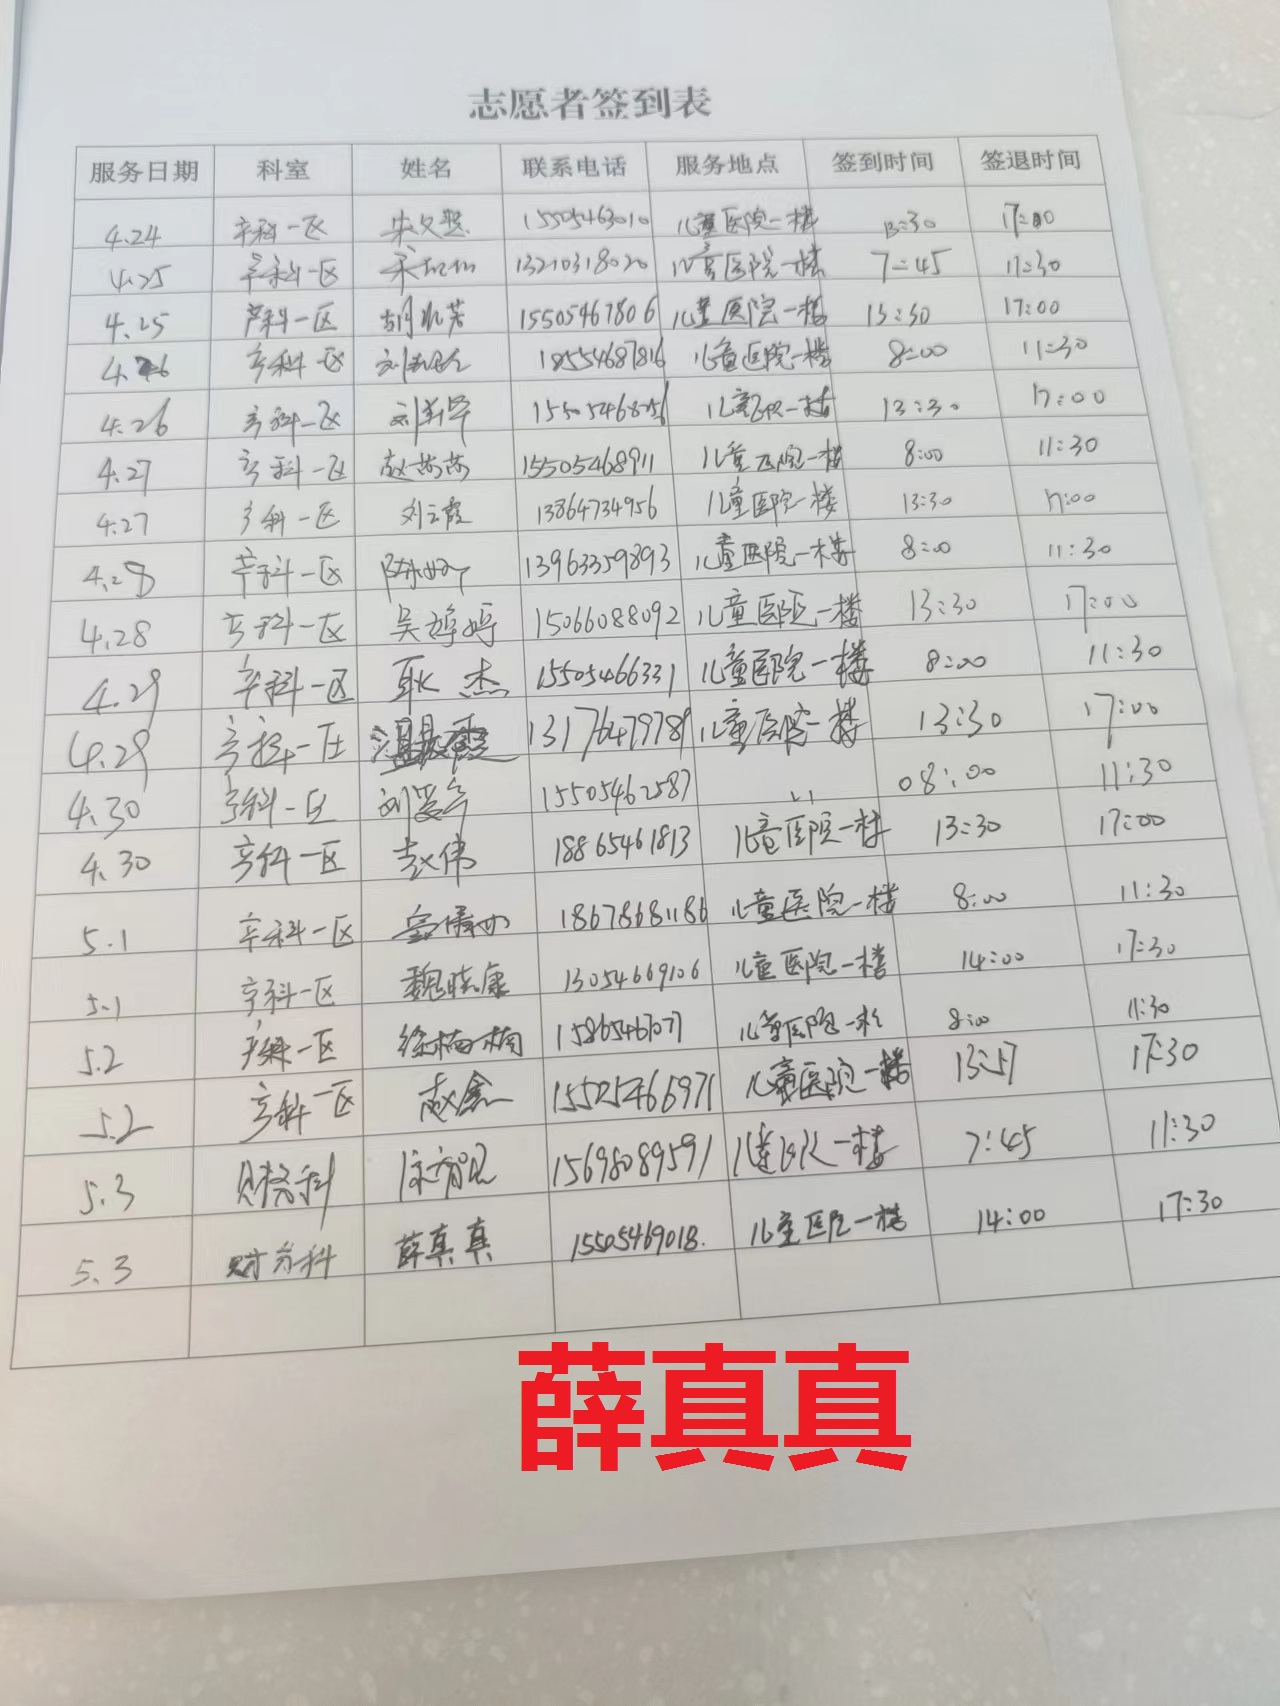 志愿者签到表
服务日期 科室 姓名 联系电话 服务地点 签到时间 签退时间
4.24 产科一区 15505463010 儿童医院一楼 13:30 17:00
4.25 产科一区 13210318020 儿童医院一楼 7:45 11:30
4.25 产科一区 15505467806 儿童医院一楼 13:30 17:00
4.26 产科一区 18554687816 儿童医院一楼 8:00 11:30
4.26 产科一区 15505468056 儿童医院一楼 13:30 17:00
4.27 产科一区 赵芮芮 15505468911 儿童医院一楼 8:00 11:30
4.27 产科一区 刘云霞 13864734956 儿童医院一楼 13:30 17:00
4.28 产科一区 13963359893 儿童医院一楼 8:00 11:30
4.28 产科一区 吴婷婷 15066088092 儿童医院一楼 13:30 17:00
4.29 产科一区 耿杰 15505466331 儿童医院一楼 8:00 11:30
4.29 产科一区 13176479789 儿童医院一楼 13:30 17:00
4.30 产科一区 15505462587 08:00 11:30
4.30 产科一区 赵伟 18865461813 儿童医院一楼 13:30 17:00
5.1 产科一区 18678681186 儿童医院一楼 8:00 11:30
5.1 产科一区 魏晓康 13054669106 儿童医院一楼 14:00 17:30
5.2 产科一区 徐楠楠 15865467077 儿童医院一楼 8:00 11:30
5.2 产科一区 赵鑫 15505466971 儿童医院一楼 13:57 17:30
5.3 财务科 15698089591 儿童医院一楼 7:45 11:30
5.3 财务科 薛真真 15505469018. 儿童医院一楼 14:00 17:30
薛真真